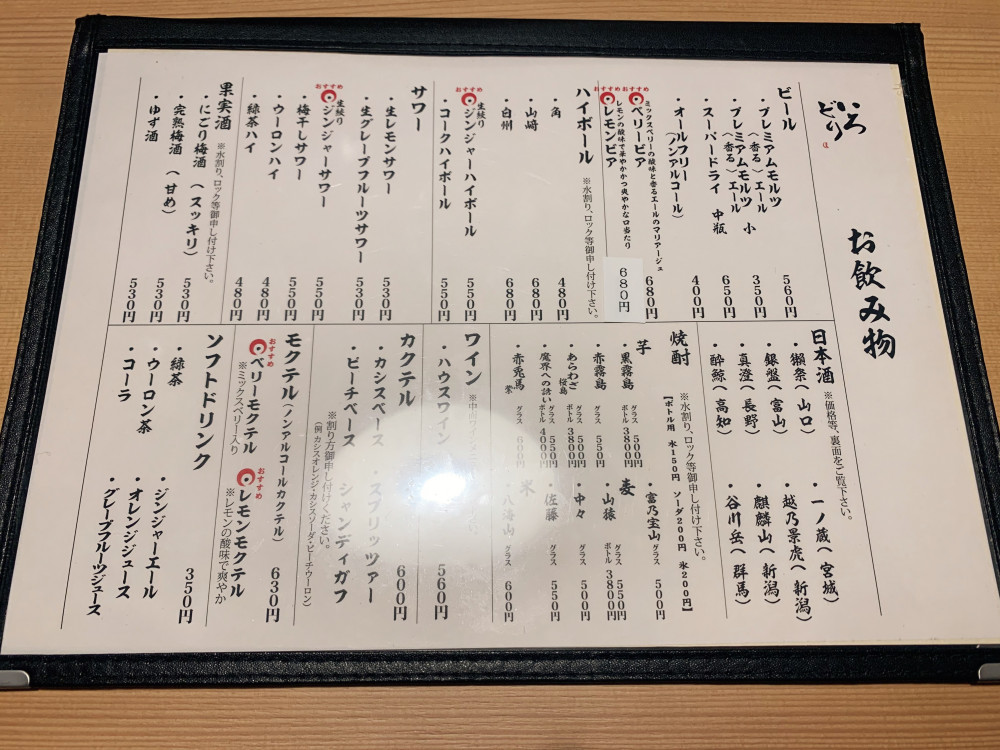 いろどり
お飲み物
ビール
・プレミアムモルツ(香る)エール 560円
・プレミアムモルツ(香る)エール 小 350円
・スーパードライ 中瓶 650円
・オールフリー(ノンアルコール) 400円
おすすめ
ベリービア 680円
ミックスベリーの酸味と香るエールのマリアージュ
おすすめ
レモンビア 680円
レモンの酸味で華やかかつ爽やかな口当たり
ハイボール
※水割り、ロック等御申し付け下さい。
・角 480円
・山崎 680円
・白州 680円
おすすめ
生絞り
ジンジャーハイボール 550円
・コークハイボール 550円
サワー
・生レモンサワー 530円
・生グレープフルーツサワー 530円
おすすめ
生絞り
ジンジャーサワー 550円
・梅干しサワー 550円
・ウーロンハイ 480円
・緑茶ハイ 480円
果実酒
※水割り、ロック等御申し付け下さい。
・にごり梅酒(スッキリ) 530円
・完熟梅酒(甘め) 530円
・ゆず酒 530円
日本酒
※価格等、裏面をご覧下さい。
・獺祭(山口)
・銀盤(富山)
・真澄(長野)
・酔鯨(高知)
・一ノ蔵(宮城)
・越乃景虎(新潟)
・麒麟山(新潟)
・谷川岳(群馬)
焼酎
※水割り、ロック等御申し付け下さい。
【ボトル用 水150円 ソーダ200円 氷200円】
芋
・黒霧島 グラス 500円 ボトル 3800円
・赤霧島 グラス 550円
・あらわざ桜島 グラス 500円 ボトル 3800円
・魔界への誘い グラス 550円 ボトル 4000円
・赤兎馬 紫 グラス 600円
・富乃宝山 グラス 500円
麦
・山猿 グラス 550円 ボトル 3800円
・中々 グラス 500円
・佐藤 グラス 550円
米
・八海山 グラス 600円
ワイン
・ハウスワイン 560円
カクテル
・カシスベース
・ピーチベース
・スプリッツァー
シャンディガフ
600円
※割り方御申し付けください。
(例 カシスオレンジ・カシスソーダ・ピーチウーロン)
モクテル(ノンアルコールカクテル) 630円
おすすめ
ベリーモクテル
※ミックスベリー入り
おすすめ
レモンモクテル
※レモンの酸味で爽やか
ソフトドリンク 350円
・緑茶
・ウーロン茶
・コーラ
・ジンジャーエール
・オレンジジュース
・グレープフルーツジュース